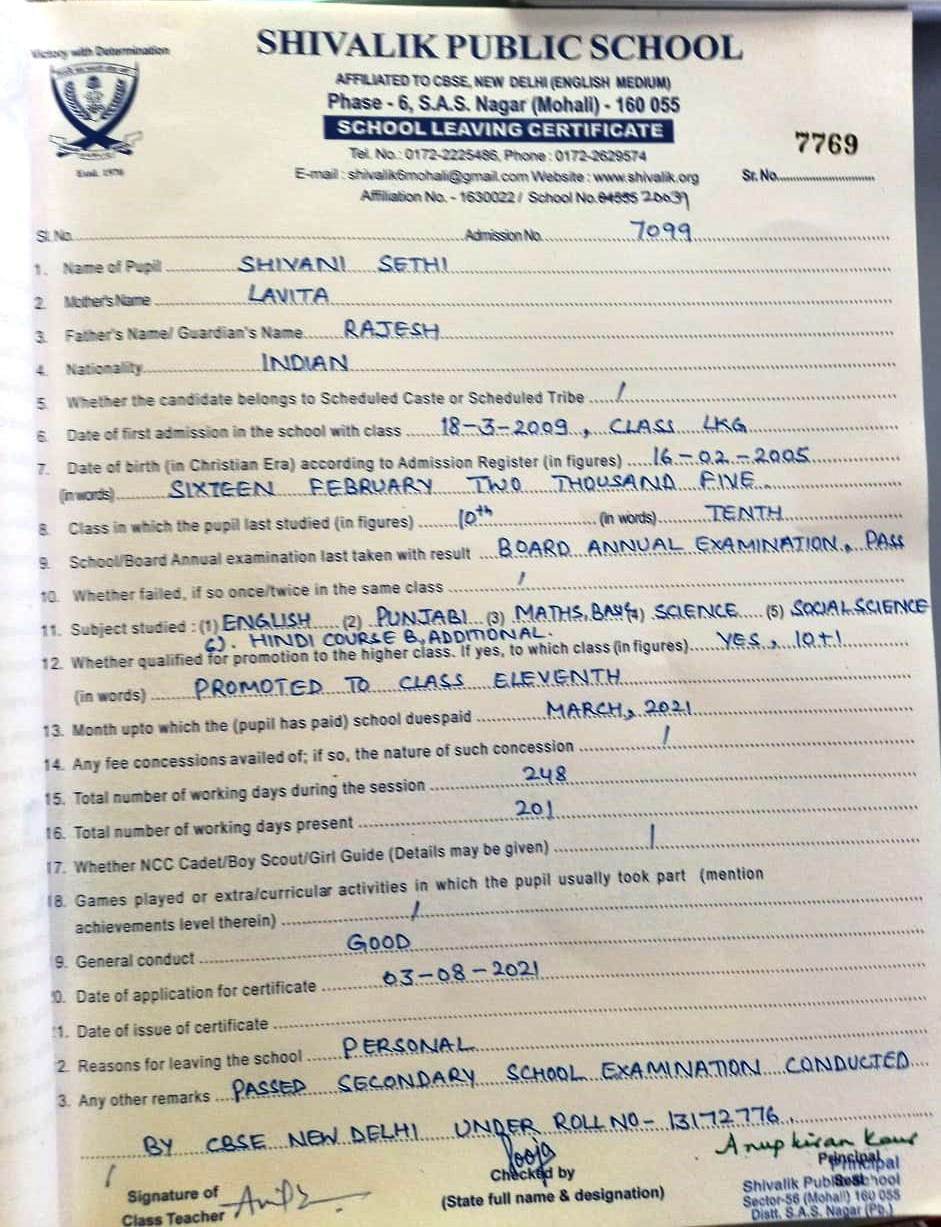 Victory with Determination
SHIVALIK PUBLIC SCHOOL
AFFILIATED TO CBSE, NEW DELHI (ENGLISH MEDIUM)
Phase - 6, S.A.S. Nagar (Mohali) - 160 055
SCHOOL LEAVING CERTIFICATE
7769
Tel. No.: 0172-2225486, Phone : 0172-2629574
E-mail : shivalik6mohali@gmail.com Website : www.shivalik.org
Sr. No.
Affiliation No. - 1630022 / School No. 04555 20039
Sl. No. Admission No. 7099
1. Name of Pupil SHIVANI SETHI
2. Mother's Name LAVITA
3. Father's Name/ Guardian's Name RAJESH
4. Nationality INDIAN
5. Whether the candidate belongs to Scheduled Caste or Scheduled Tribe /
6. Date of first admission in the school with class 18-3-2009, CLASS LKG
7. Date of birth (in Christian Era) according to Admission Register (in figures) 16-02-2005
(in words) SIXTEEN FEBRUARY TWO THOUSAND FIVE.
8. Class in which the pupil last studied (in figures) 10th (in words) TENTH
9. School/Board Annual examination last taken with result BOARD ANNUAL EXAMINATION, PASS
10. Whether failed, if so once/twice in the same class /
11. Subject studied : (1) ENGLISH (2) PUNJABI (3) MATHS, (4) SCIENCE (5) SOCIAL SCIENCE
6). HINDI COURSE B, ADDITIONAL.
12. Whether qualified for promotion to the higher class. If yes, to which class (in figures) YES, 10+1
(in words) PROMOTED TO CLASS ELEVENTH
13. Month upto which the (pupil has paid) school duespaid MARCH, 2021
14. Any fee concessions availed of; if so, the nature of such concession /
15. Total number of working days during the session 248
16. Total number of working days present 201
17. Whether NCC Cadet/Boy Scout/Girl Guide (Details may be given) /
18. Games played or extra/curricular activities in which the pupil usually took part (mention
achievements level therein) /
9. General conduct GOOD
0. Date of application for certificate 03-08-2021
1. Date of issue of certificate
2. Reasons for leaving the school PERSONAL
3. Any other remarks PASSED SECONDARY SCHOOL EXAMINATION CONDUCTED
BY CBSE NEW DELHI UNDER ROLL NO- 13172776.
Pooja
Anupkiran Kaur
Principal
Checked by
Signature of
Class Teacher
(State full name & designation)
Shivalik Public School
Sector-56 (Mohali) 160 055
Distt. S.A.S. Nagar (Pb.)